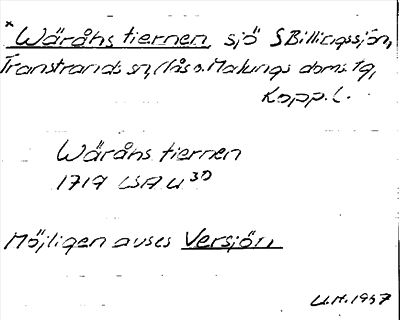 * Wäråhs tiernen, sjö S Billingssjön,
Transtrands sn, Nås o. Malungs doms.tg,
Kopp. l.
Wäråhs tiernen
1719 LSA U 30
Möjligen avses Versjön
U.H. 1957